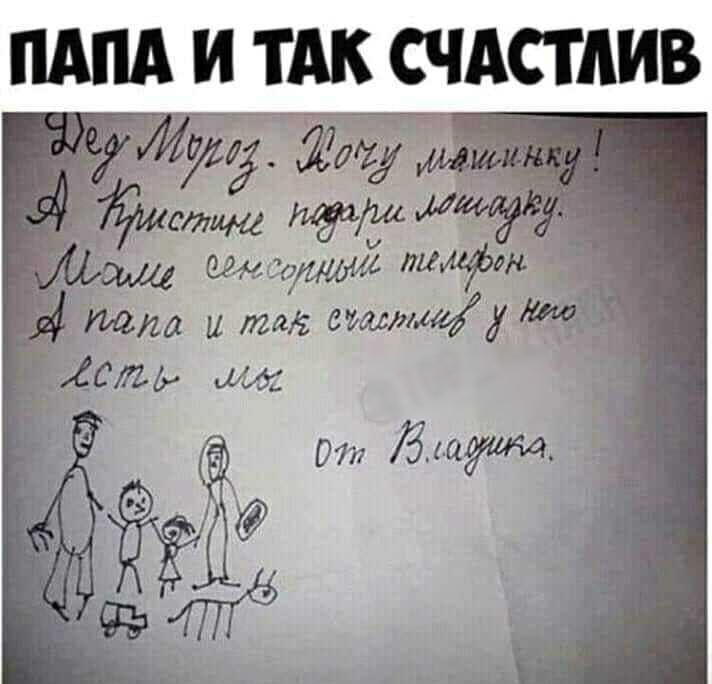 ПАПА И ТАК СЧАСТЛИВ
Дед Мороз. Хочу машинку!
А Кристине подари лошадку.
Маме сенсорный телефон
А папа и так счастлив у него
есть мы
от Владика.